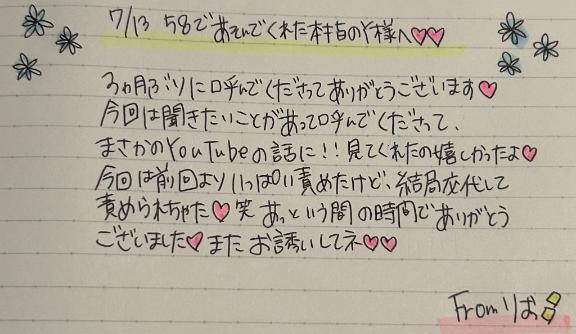 7/13 58であそんでくれた本指のY様へ♡♡
3ヵ月ぶりに呼んでくださってありがとうございます♡
今回は聞きたいことがあって呼んでくださって、
まさかのYouTubeの話に!! 見てくれたの嬉しかったよ♡
今回は前回よりいっぱい責めたけど、結局交代して
責められちゃた♡笑 あっという間の時間でありがとう
ございました♡またお誘いしてネ♡♡
From りお